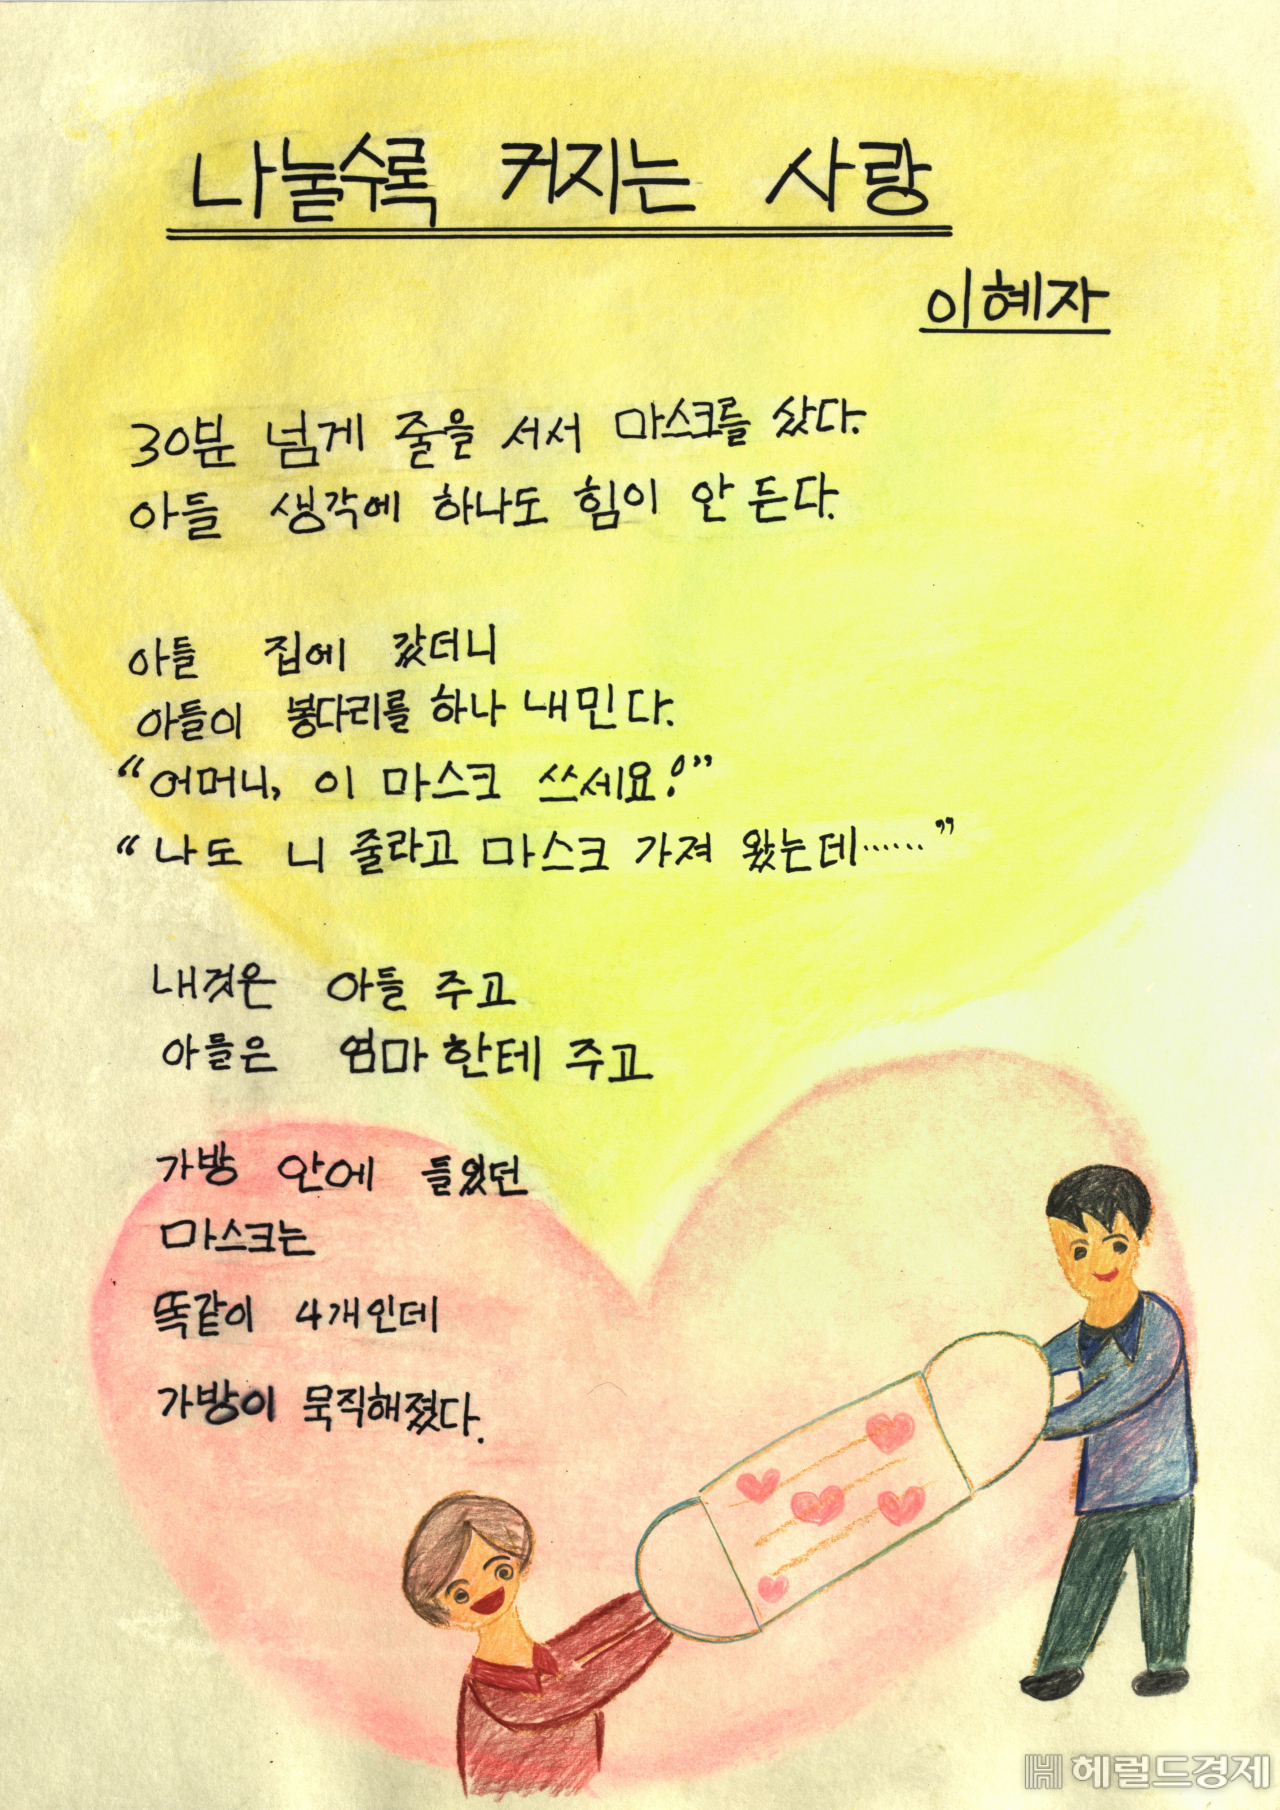 나눌수록 커지는 사랑
이혜자
30분 넘게 줄을 서서 마스크를 샀다.
아들 생각에 하나도 힘이 안 든다.
아들 집에 갔더니
아들이 봉다리를 하나 내민다.
“어머니, 이 마스크 쓰세요!”
“나도 니 줄라고 마스크 가져 왔는데……”
내것은 아들 주고
아들은 엄마한테 주고
가방 안에 들었던
마스크는
똑같이 4개인데
가방이 묵직해졌다.
헤럴드경제